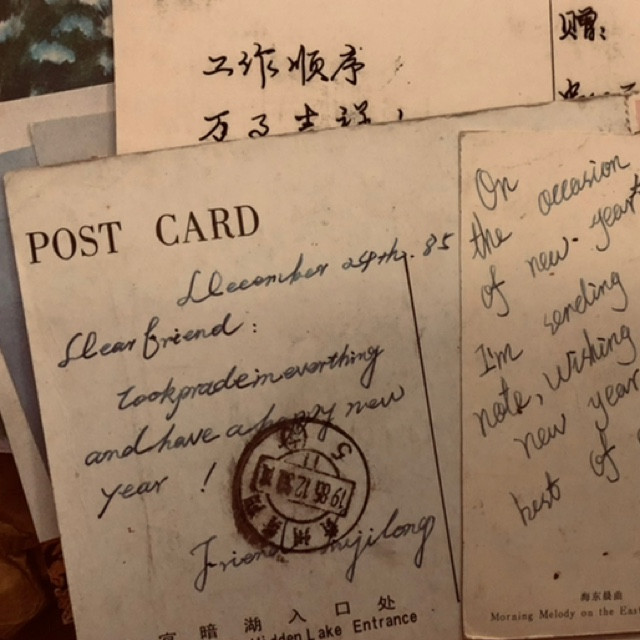 工作顺序
万
赠:
POST CARD
December 24th. 85
Dear friend:
tookpradeineverthing
and have a happy new
year !
1985.12.
Friend
湖 入 口 处
Hidden Lake Entrance
On
the occasion
of new-year
I'm sending
note, wishing
new year
best of
海东晨曲
Morning Melody on the East